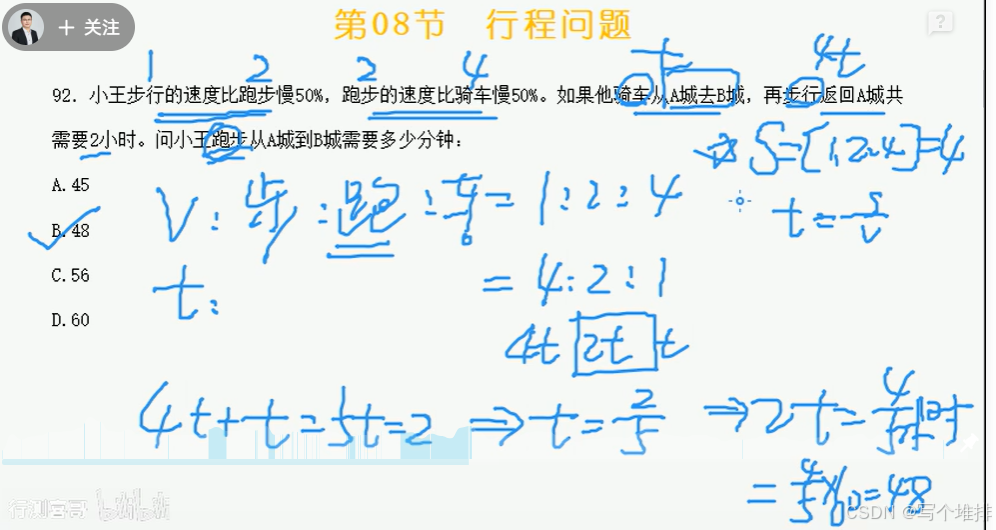 + 关注
第08节 行程问题
?
1 2 2 4 t 4t
92. 小王步行的速度比跑步慢50%，跑步的速度比骑车慢50%。如果他骑车从A城去B城，再步行返回A城共
需要2小时。问小王跑步从A城到B城需要多少分钟：
⇒ S=[1,2,4]=4
A.45
V: 步:跑:车=1:2:4
t=S/V
B.48
C.56
t: =4:2:1
D.60
4t 2t t
4t+t=5t=2 ⇒ t=2/5 ⇒ 2t=4/5小时
=4/5×60=48
行测喜哥 bilibili
CSDN @写个堆排